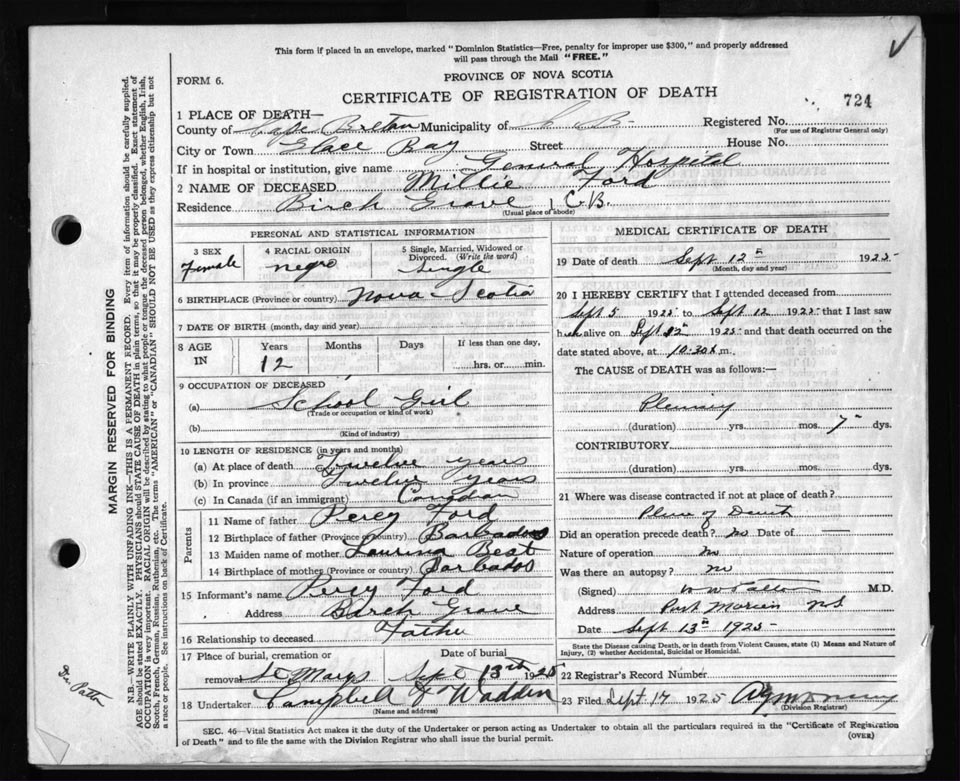 This form if placed in an envelope, marked "Dominion Statistics—Free, penalty for improper use $300," and properly addressed
will pass through the Mail "FREE."
FORM 6.
PROVINCE OF NOVA SCOTIA
CERTIFICATE OF REGISTRATION OF DEATH
724
1 PLACE OF DEATH—
Registered No.
(For use of Registrar General only)
County of Cape Breton Municipality of C B
City or Town Glace Bay Street House No.
If in hospital or institution, give name General Hospital
2 NAME OF DECEASED Millie Ford
Residence Birch Grove C.B.
(Usual place of abode)
PERSONAL AND STATISTICAL INFORMATION
3 SEX Female
4 RACIAL ORIGIN negro
5 Single, Married, Widowed or Divorced. (Write the word) Single
6 BIRTHPLACE (Province or country) Nova Scotia
7 DATE OF BIRTH (month, day and year)
8 AGE IN Years Months Days If less than one day,
12 hrs. or min.
9 OCCUPATION OF DECEASED
(a) School Girl
(Trade or occupation or kind of work)
(b)
(Kind of industry)
10 LENGTH OF RESIDENCE (in years and months)
(a) At place of death Twelve years
(b) In province Twelve years
(c) In Canada (if an immigrant) Canadian
Parents
11 Name of father Percy Ford
12 Birthplace of father (Province or country) Barbados
13 Maiden name of mother Laurina Best
14 Birthplace of mother (Province or country) Barbados
15 Informant's name Percy Ford
Address Birch Grove
16 Relationship to deceased Father
17 Place of burial, cremation or removal St Marys
Date of burial Sept 13th 1925
18 Undertaker Campbell & Wadden
(Name and address)
MEDICAL CERTIFICATE OF DEATH
19 Date of death Sept 12th 1925
(Month, day and year)
20 I HEREBY CERTIFY that I attended deceased from
Sept 5 1925 to Sept 12 1925 that I last saw
her alive on Sept 12th 1925 and that death occurred on
date stated above, at 10.30 m.
The CAUSE of DEATH was as follows:—
Pleurisy
(duration) yrs. mos. 7 dys.
CONTRIBUTORY
(duration) yrs. mos. dys.
21 Where was disease contracted if not at place of death?
Place of Death
Did an operation precede death? no Date of
Nature of operation no
Was there an autopsy? no
(Signed) M.D.
Address Port Morien NS
Date Sept 13th 1925
State the Disease causing Death, or in death from Violent Causes, state (1) Means and Nature of
Injury, (2) whether Accidental, Suicidal or Homicidal.
22 Registrar's Record Number
23 Filed Sept 14 1925
(Division Registrar)
SEC. 46—Vital Statistics Act makes it the duty of the Undertaker or person acting as Undertaker to obtain all the particulars required in the "Certificate of Registration
of Death" and to file the same with the Division Registrar who shall issue the burial permit.
(OVER)
MARGIN RESERVED FOR BINDING
N.B.—WRITE PLAINLY WITH UNFADING INK—THIS IS A PERMANENT RECORD. Every item of information should be carefully supplied.
AGE should be stated EXACTLY. PHYSICIANS should STATE CAUSE OF DEATH in plain terms, so that it may be properly classified. Exact statement of
OCCUPATION is very important. RACIAL ORIGIN will be described by stating to what people or tongue the deceased person belonged, whether English, Irish,
Scotch, French, German, Russian, Ruthenian, etc. The terms "AMERICAN" or "CANADIAN" SHOULD NOT BE USED as they express citizenship but not
a race or people. See instructions on back of Certificate.
Dr. Patton